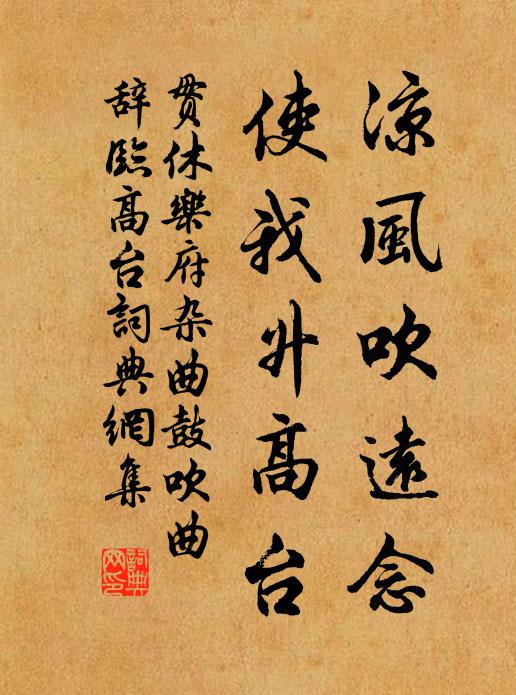 凉風吹遠念
使我升高台
貫休樂府杂曲鼓吹曲
辞臨高台詞典網集
詞典网印